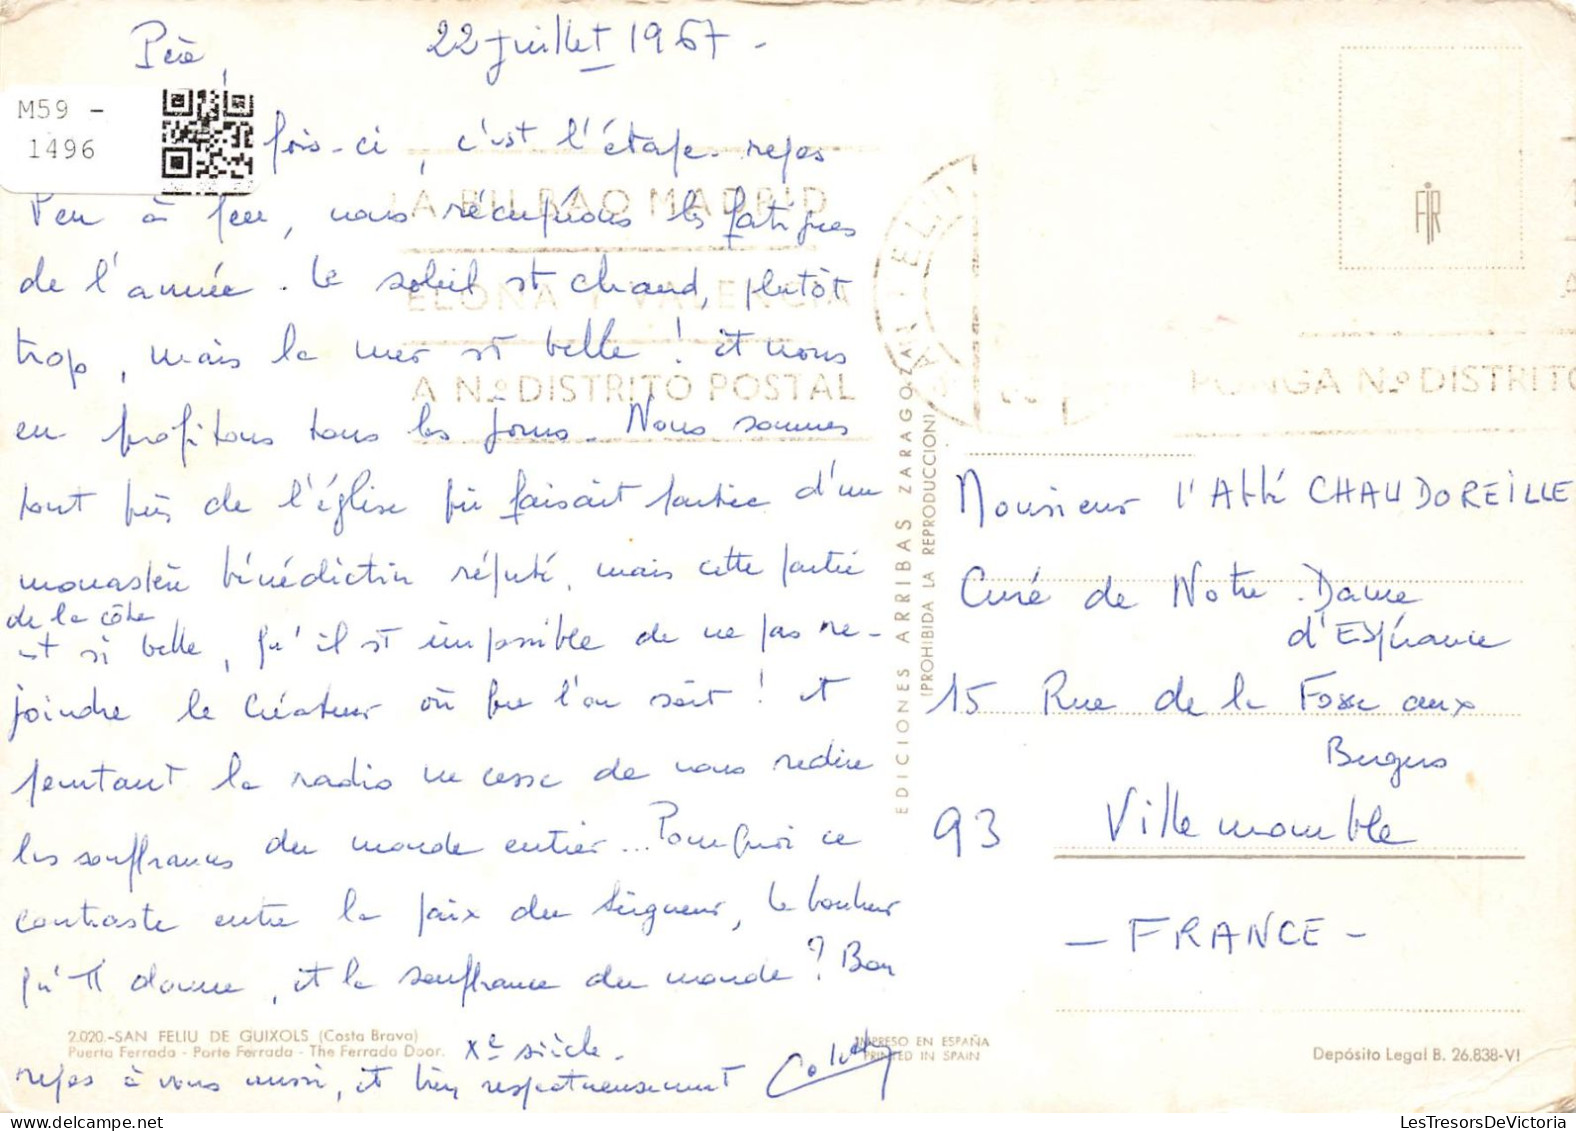 22 Juillet 1967 -
Père,
M59 -
1496
fois-ci, c'est l'étape-repos
Peu à peu, nous récupérons les fatigues
de l'année. Le soleil est chaud, plutôt
trop, mais la mer est belle ! et nous
en profitons tous les jours. Nous sommes
tout près de l'église qui faisait partie d'un
monastère bénédictin réputé, mais cette partie
de la côte
est si belle, qu'il est impossible de ne pas re-
joindre le Créateur où que l'on soit ! et
pourtant la radio ne cesse de nous redire
les souffrances du monde entier... Pourquoi ce
contraste entre la paix du Seigneur, le bonheur
qu'Il donne, et la souffrance du monde ? Bon
2.020.-SAN FELIU DE GUIXOLS (Costa Brava)
Puerta Ferrada - Porte Ferrada - The Ferrada Door.
Xe siècle.
repos à vous aussi, et bien respectueusement
IMPRESO EN ESPAÑA
PRINTED IN SPAIN
EDICIONES ARRIBAS ZARAGOZA
(PROHIBIDA LA REPRODUCCION)
LA BILBAO MADRID
ELONA Y VALENCIA
A Nº DISTRITO POSTAL
FIR
PONGA Nº DISTRITO
Monsieur l'Abbé CHAUDOREILLE
Curé de Notre-Dame
d'Espérance
15 Rue de la Fosse aux
Bergers
93 Villemomble
- FRANCE -
Depósito Legal B. 26.838-VI
LesTresorsDeVictoria.com